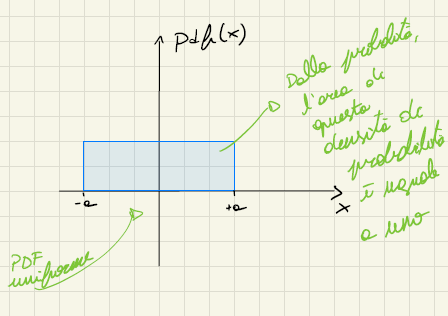 pdf(x)
Dalla probabilità,
l'area di
questa
densità di
probabilità
è uguale
a uno
-a
+a
x
PDF
uniforme